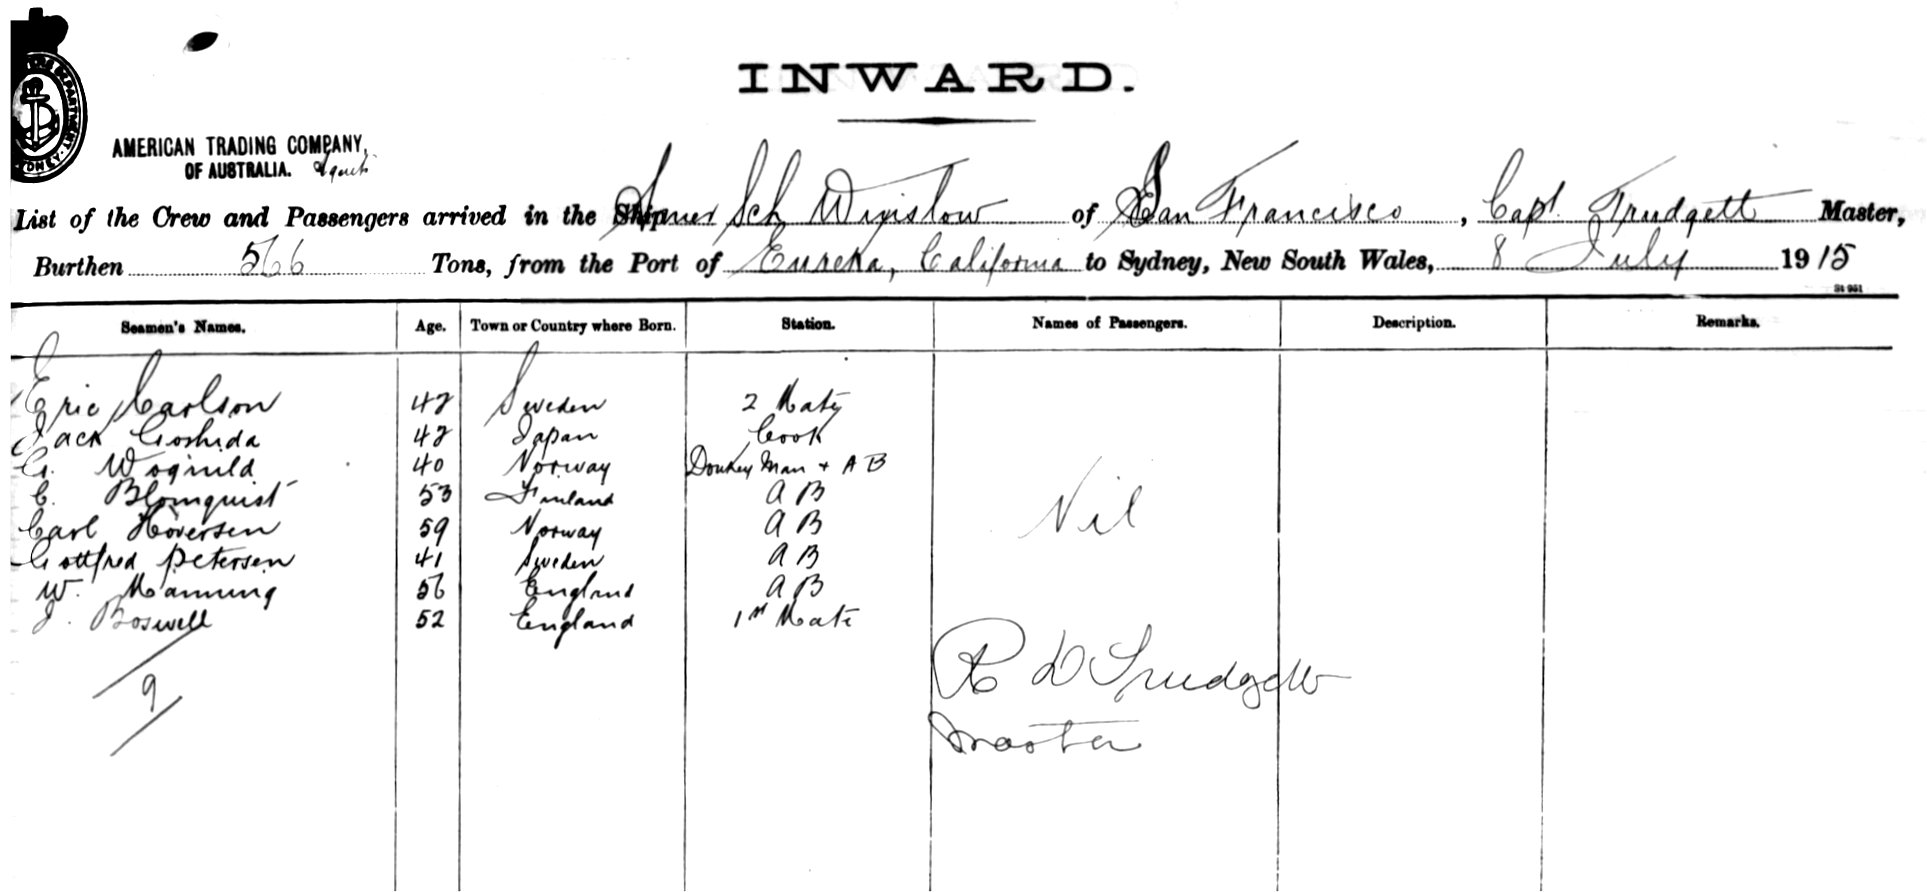 INWARD.
AMERICAN TRADING COMPANY,
OF AUSTRALIA. Agents
List of the Crew and Passengers arrived in the Ship Sch Winslow of San Francisco, Capt. Trudgett Master,
Burthen 566 Tons, from the Port of Eureka, California to Sydney, New South Wales, 8 July 1915
St 951
Seamen's Names. Age. Town or Country where Born. Station. Names of Passengers. Description. Remarks.
Eric Carlson 42 Sweden 2 Mate
Jack Yoshida 42 Japan Cook
40 Norway Donkey Man + A B
C. Blomquist 53 Finland A B
Carl Hoversen 59 Norway A B
Nil
Gottfred Petersen 41 Sweden A B
W. Manning 56 England A B
J. Boswell 52 England 1st Mate
9
R D Trudgett
Master